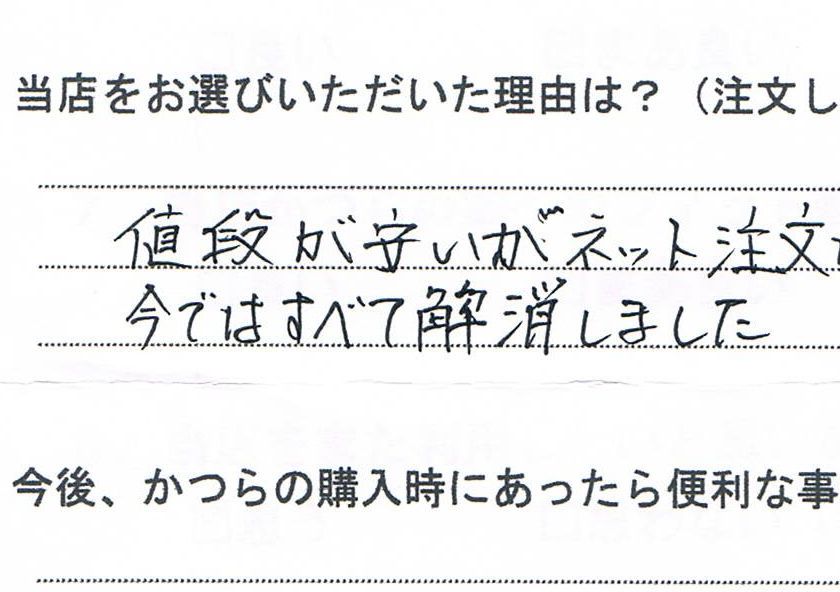 当店をお選びいただいた理由は？（注文し
値段が安いがネット注文
今ではすべて解消しました
今後、かつらの購入時にあったら便利な事